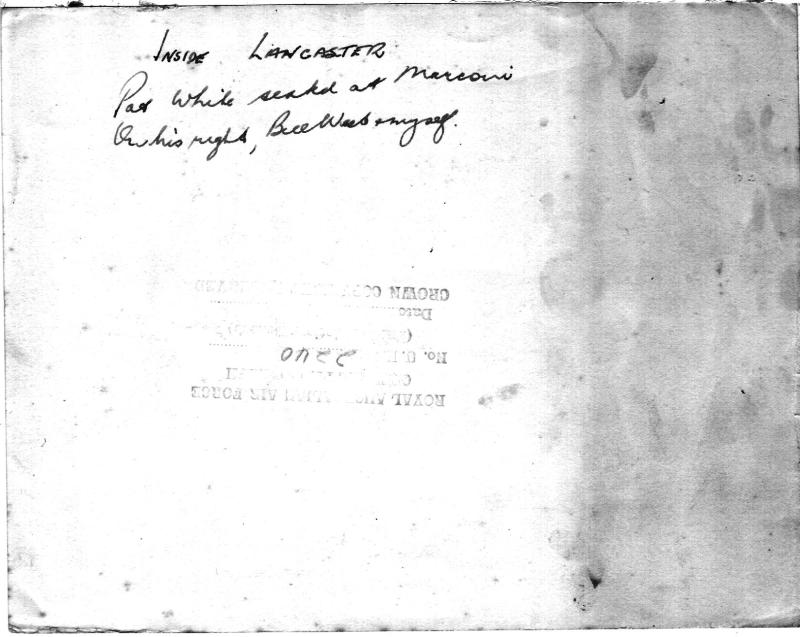 INSIDE LANCASTER
Pat White seated at Marconi
On his right, Bill West & myself.
CROWN COPYRIGHT RESERVED
Date
No. U.K. 2240
ROYAL AUSTRALIAN AIR FORCE